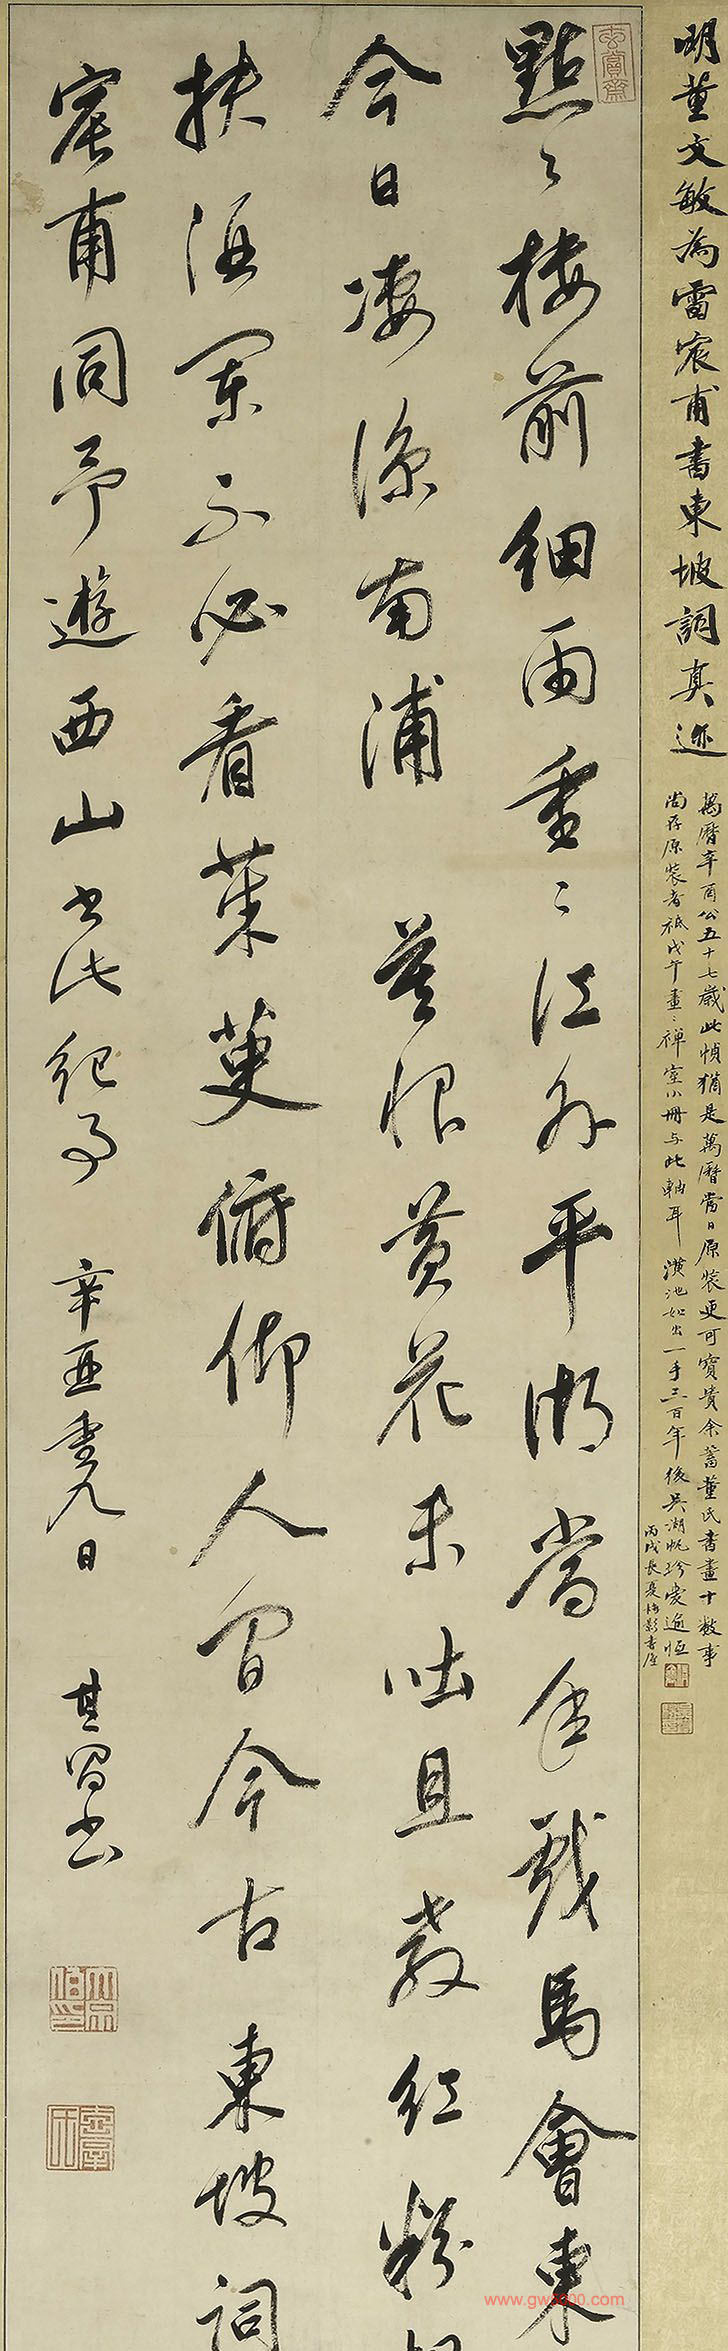 明董文敏為雷宸甫書東坡詞真迹
萬曆辛酉公五十七歲此幀猶是萬曆當日原裝更可寶貴余蓄董氏書畫十數事
尚存原裝者祇戊午畫〻禪室小冊与此軸耳 潢池如出一手三百年後吳湖帆珍愛逾恒
丙戌長夏梅影書屋
玄賞齋
點〻樓前細雨重〻江外平湖當年戲馬會東
今日淒涼南浦 莫恨黃花未吐且教紅粉
扶酒闌不必看茱萸俯仰人間今古東坡詞
宸甫同予遊西山書此紀事 辛酉重九日 其昌書